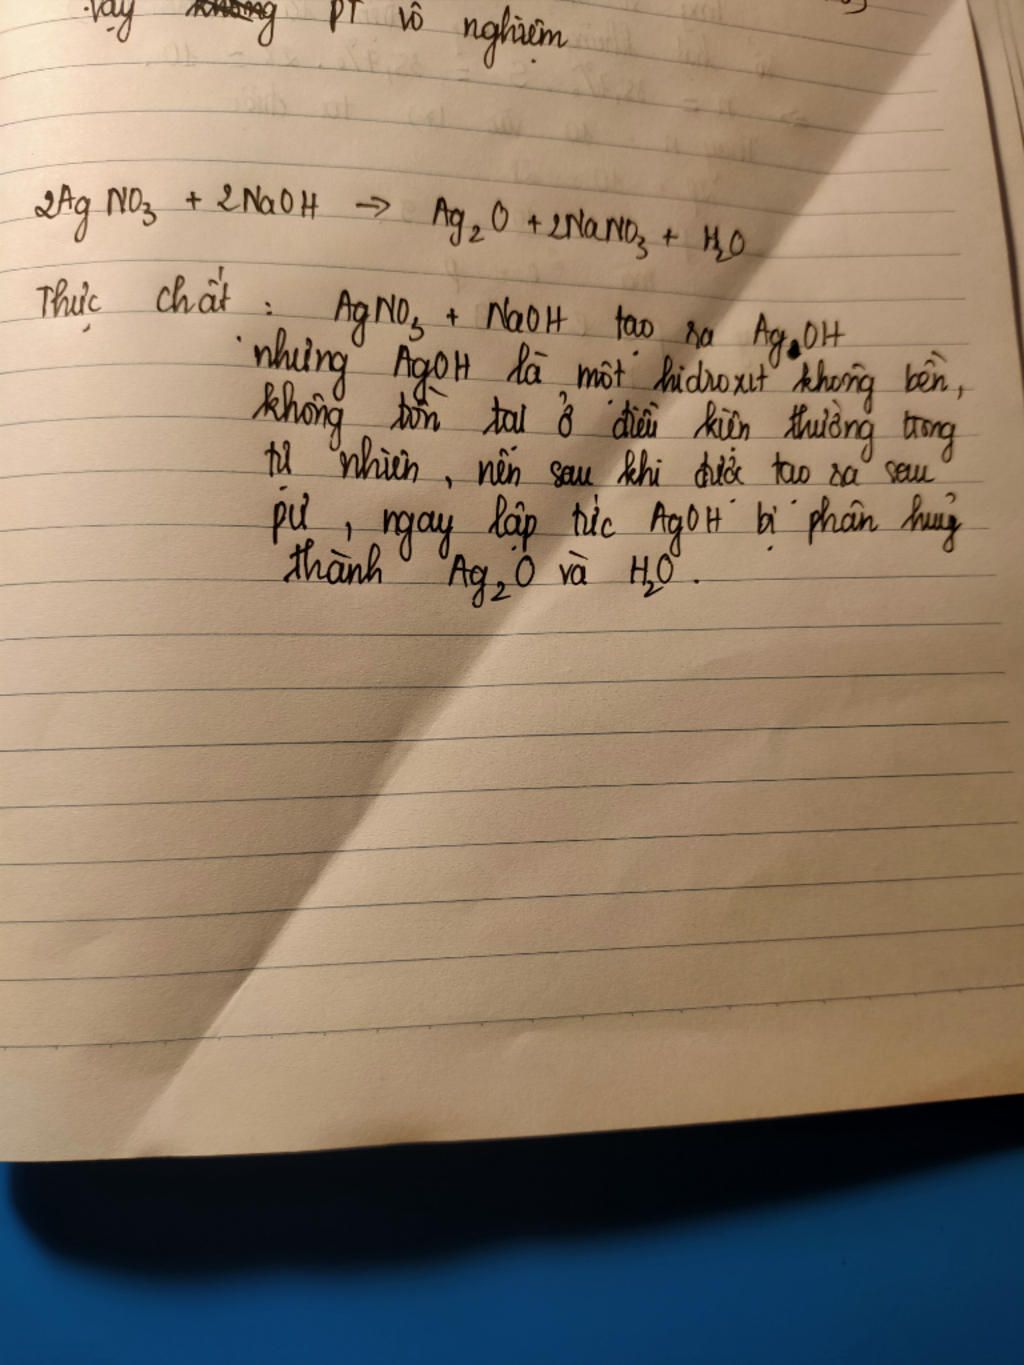 vậy không PT vô nghiệm
2AgNO₃ + 2NaOH → Ag₂O + 2NaNO₃ + H₂O
Thực chất : AgNO₃ + NaOH tạo ra AgOH
nhưng AgOH là một hidroxit không bền,
không tồn tại ở điều kiện thường trong
tự nhiên, nên sau khi được tạo ra sau
pư, ngay lập tức AgOH bị phân huỷ
thành Ag₂O và H₂O.